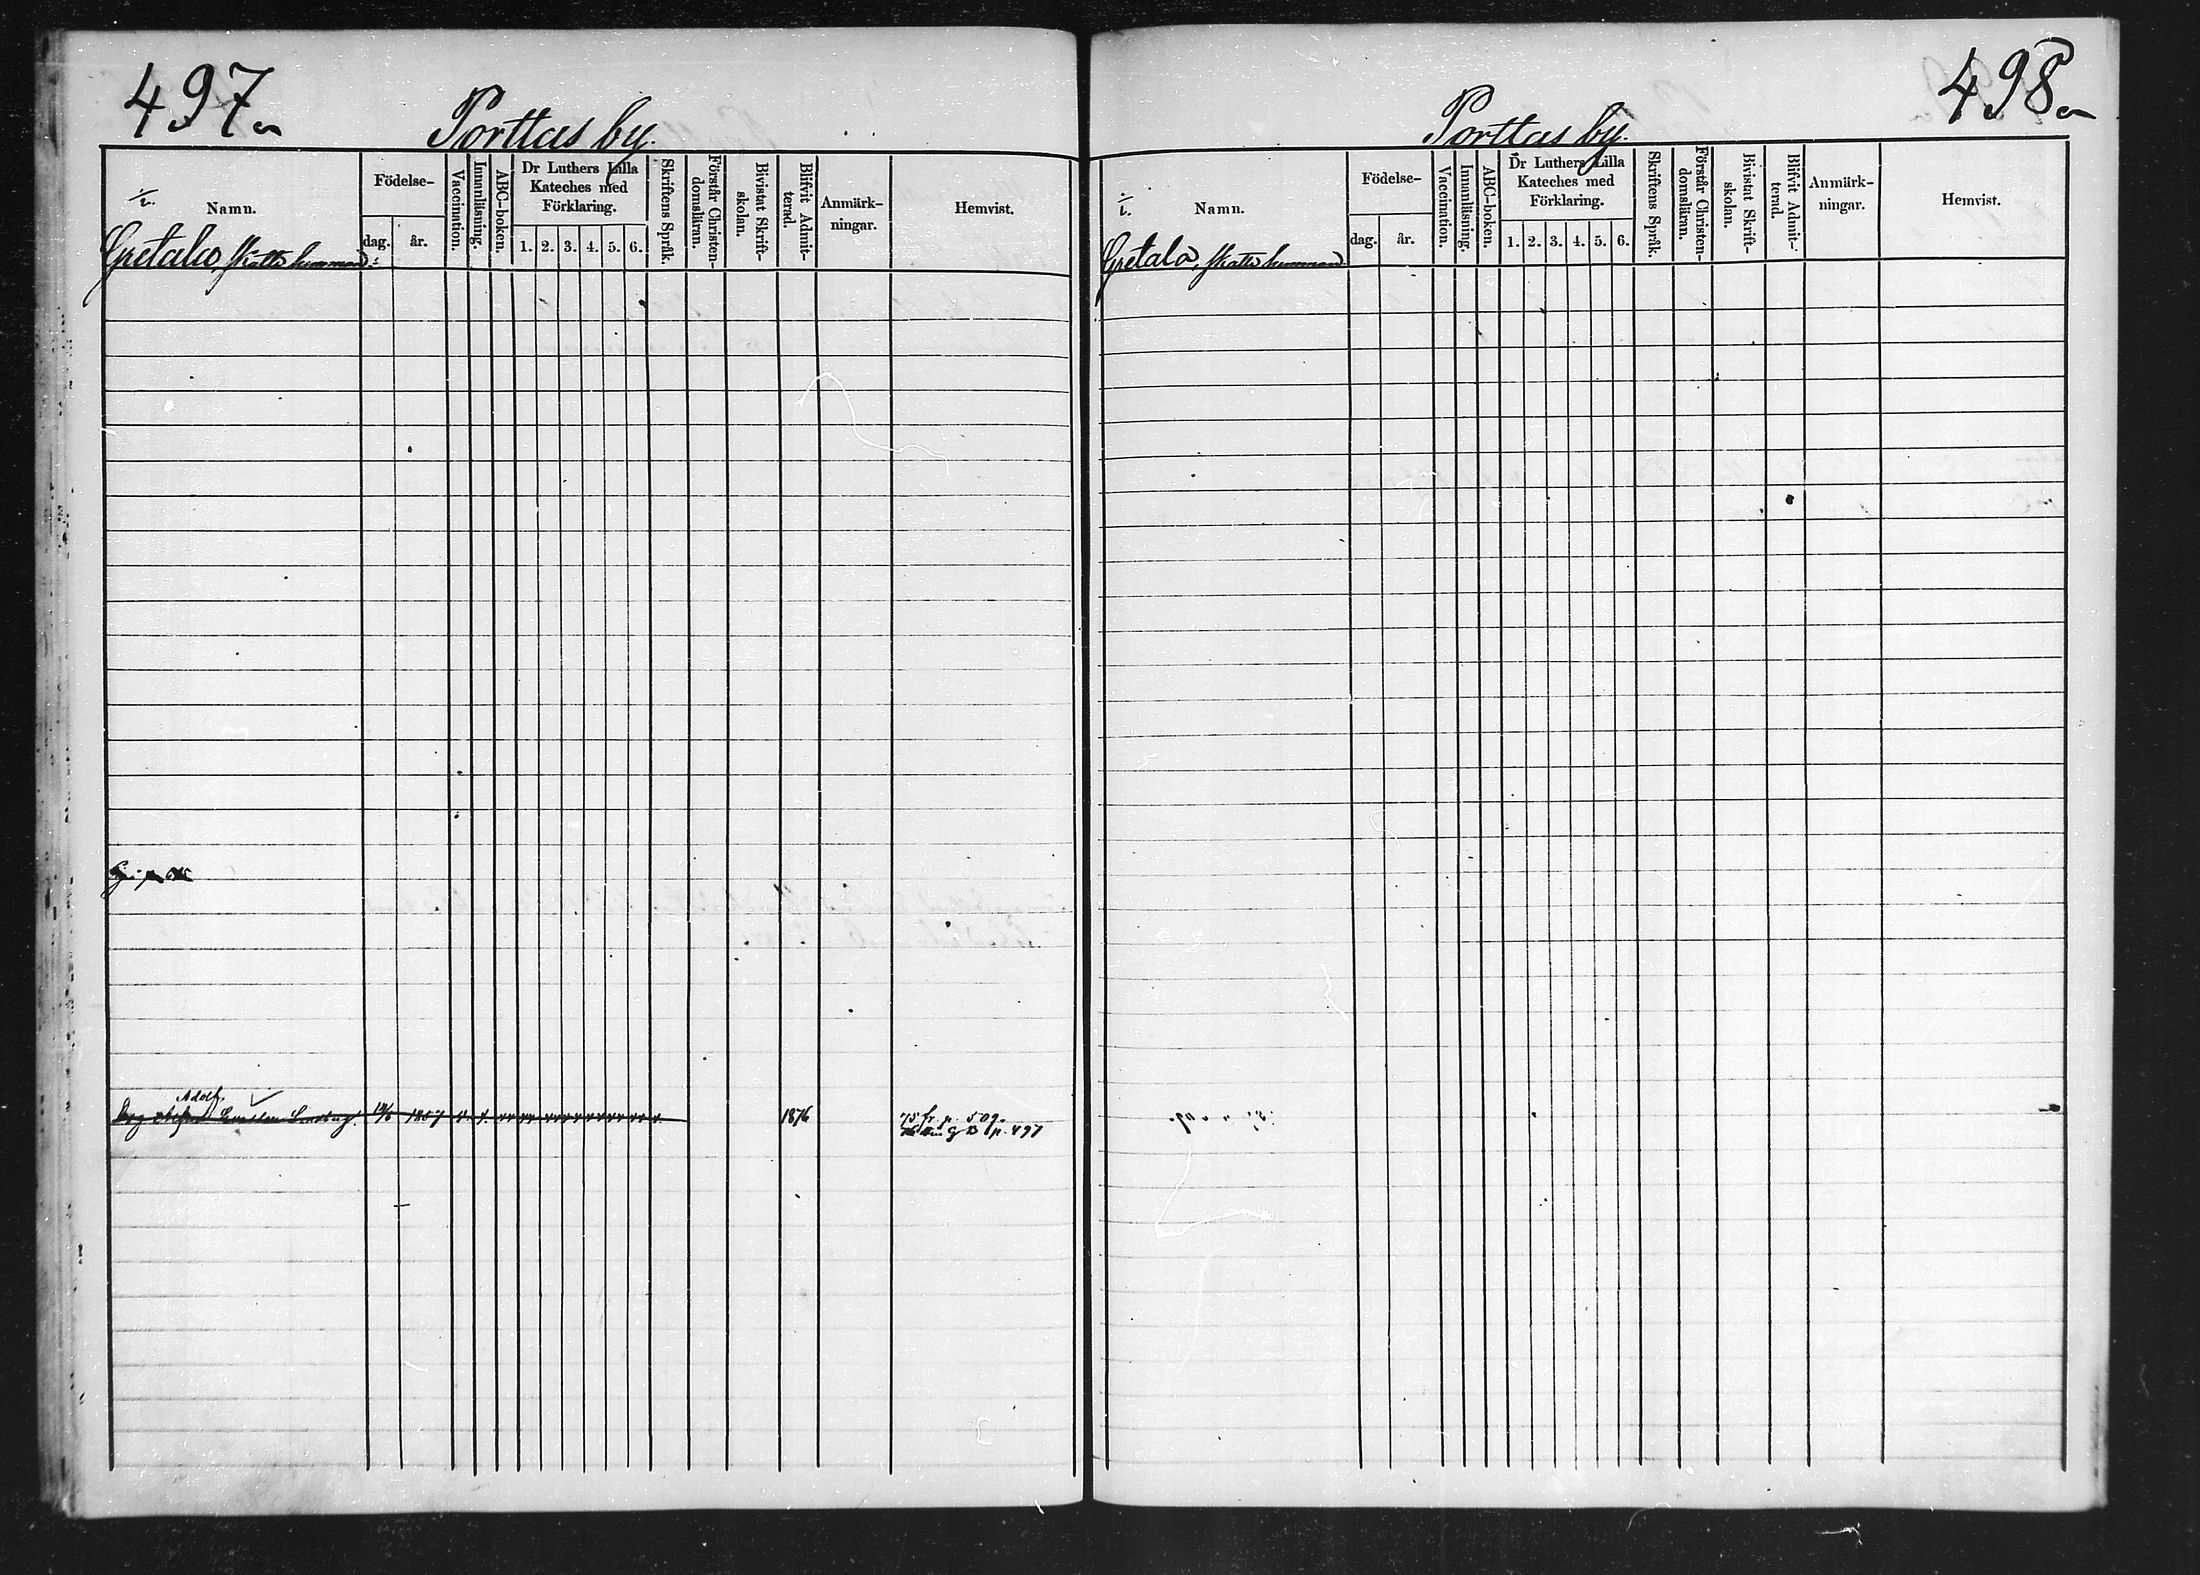 497a
Porttas by.
Namn.
Födelse-
dag.
år.
Vaccination.
Innanläsning.
ABC-boken.
Dr Luthers Lilla
Kateches med
Förklaring.
1. 2. 3. 4. 5. 6.
Skriftens Språk.
Förstår Christen-
domsläran.
Bivistat Skrift-
skolan.
Blifvit Admit-
terad.
Anmärk-
ningar.
Hemvist.
Gretala, Skatte hemman
Adolf
1857
1876
75 fr. p. 509.
p. 497
498a
Porttas by
Namn.
Födelse-
dag.
år.
Vaccination.
Innanläsning.
ABC-boken.
Dr Luthers Lilla
Kateches med
Förklaring.
1. 2. 3. 4. 5. 6.
Skriftens Språk.
Förstår Christen-
domsläran.
Bivistat Skrift-
skolan.
Blifvit Admit-
terad.
Anmärk-
ningar.
Hemvist.
Gretala, Skatte hemman